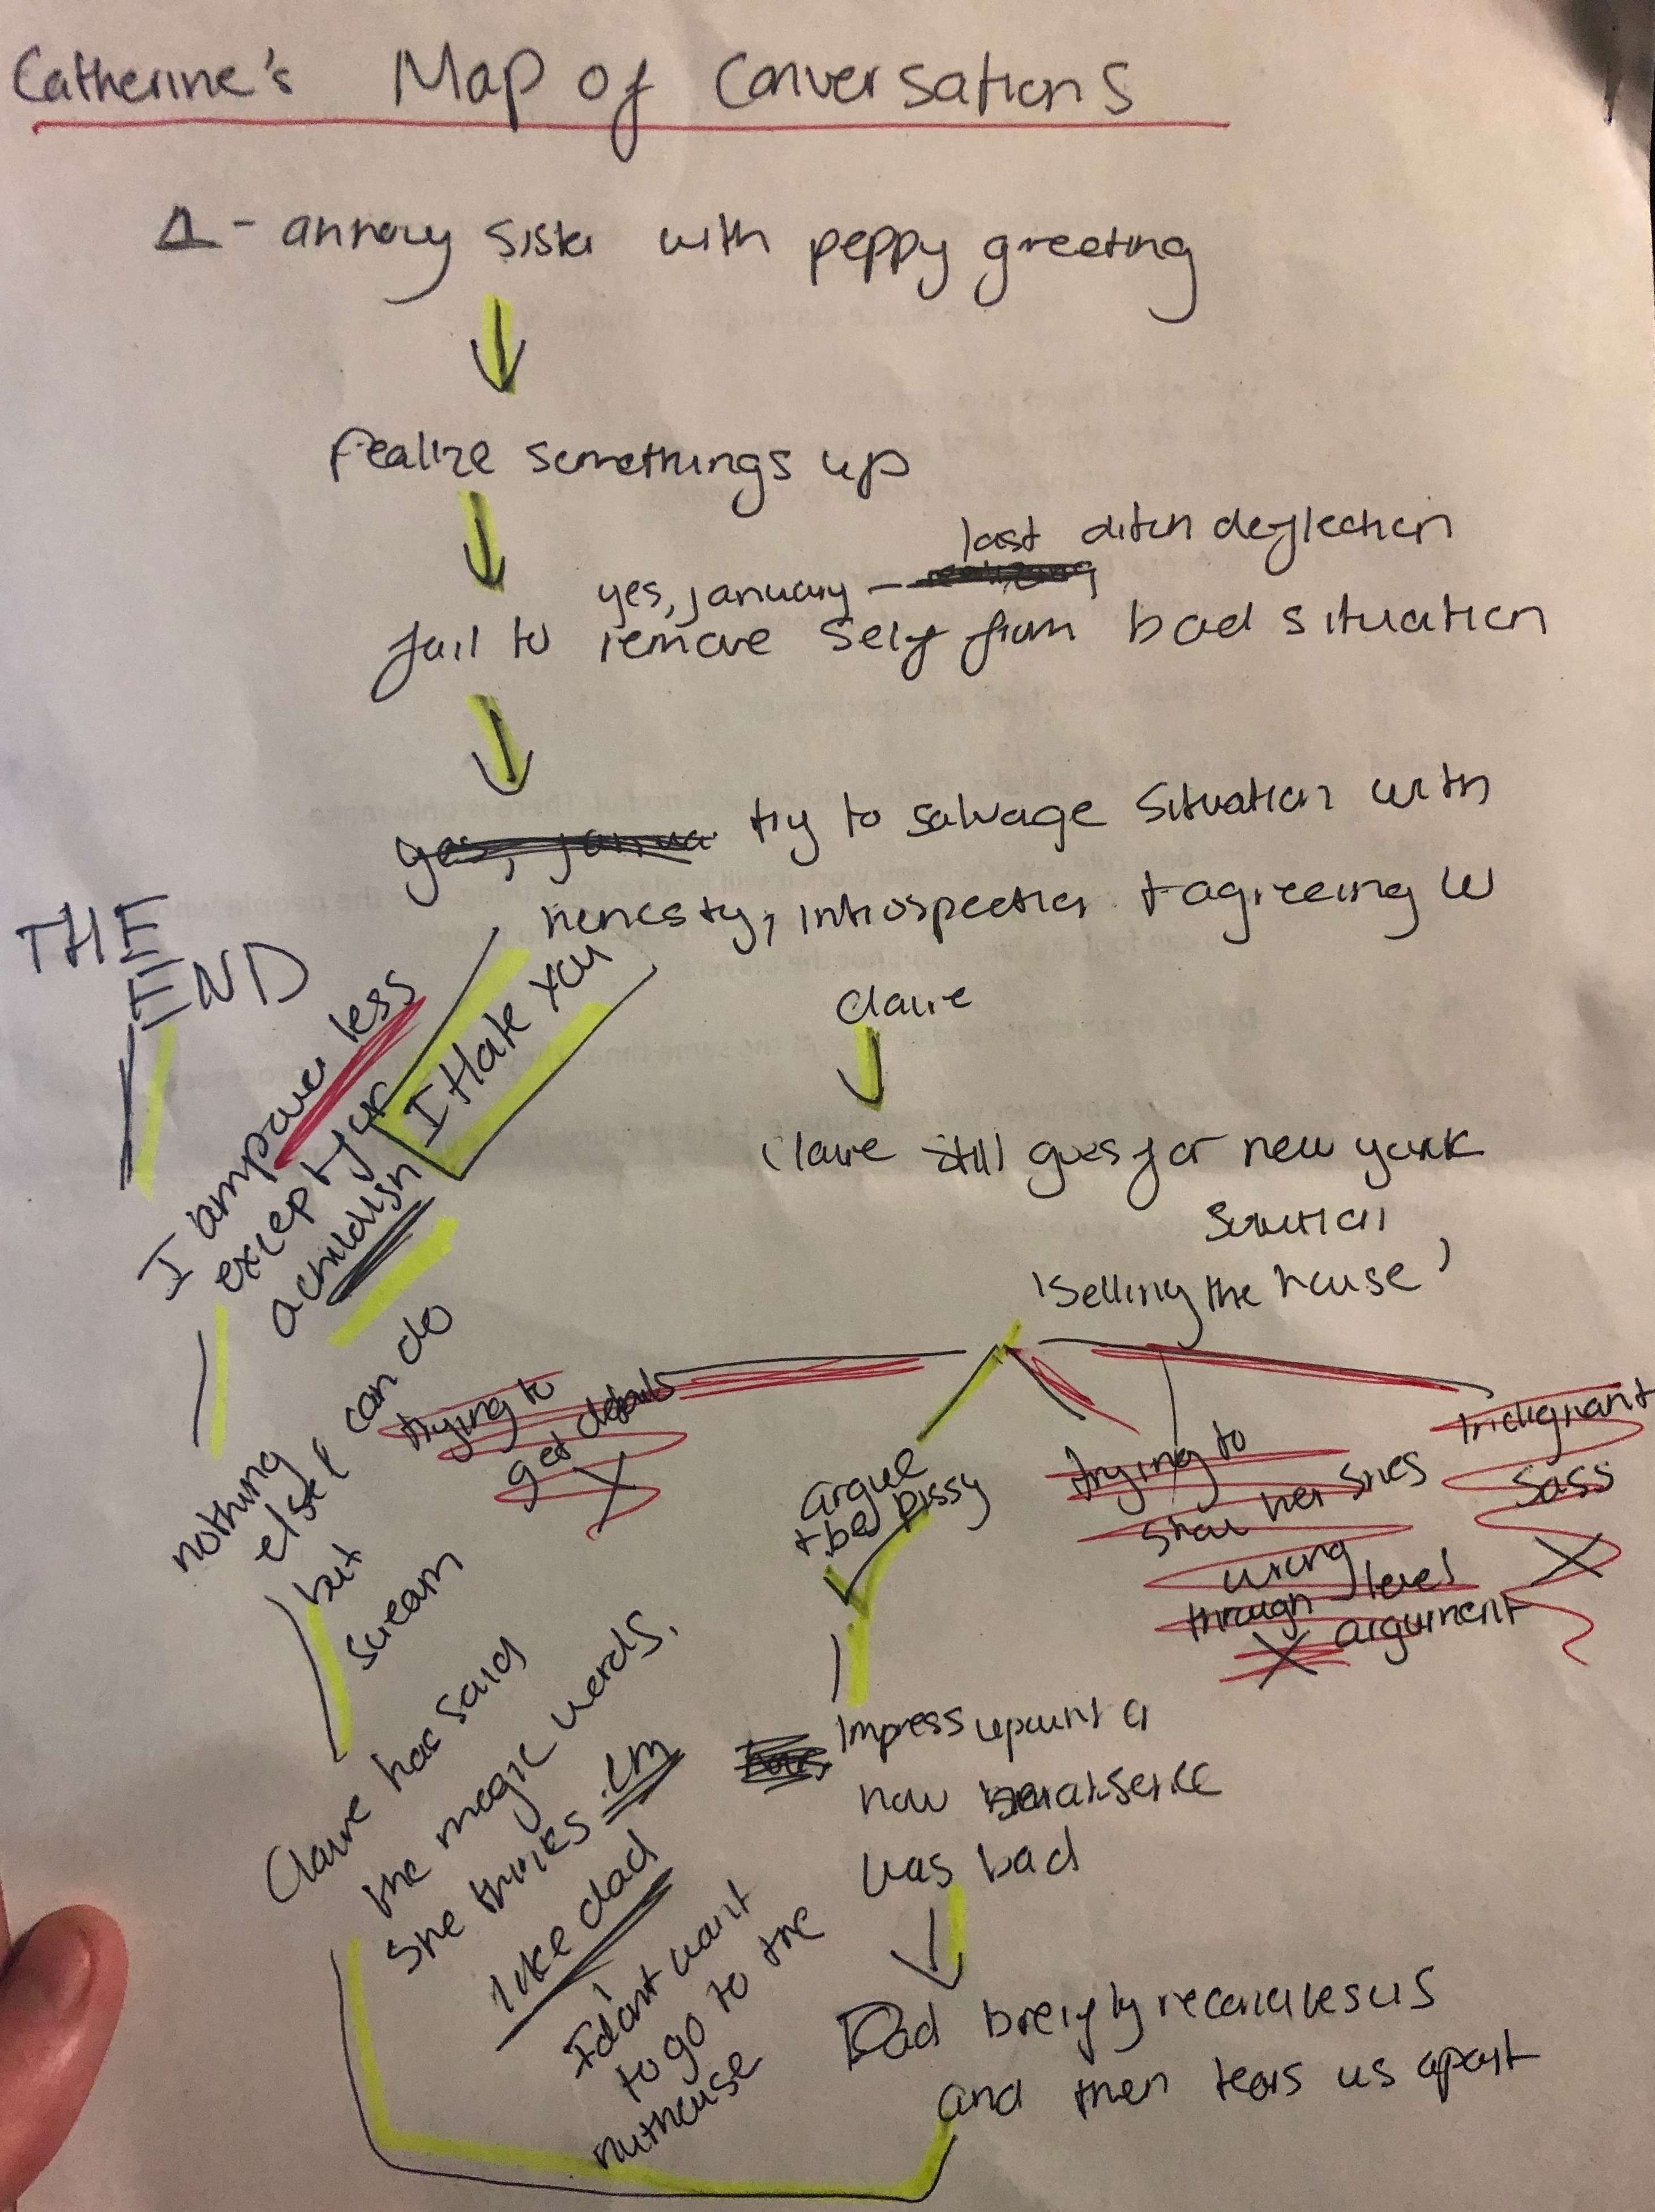 Catherine's Map of Conversations
Δ - annoy sister with peppy greeting
realize somethings up
last ditch deflection
yes, january -
fail to remove self from bad situation
yes, janua try to salvage situation with
honesty, introspection + agreeing w
Claire
Claire still goes for new york
solution
'selling the house'
trying to
get details
X
argue
+ be pissy
trying to
show her shes
wrong
through level
X argument
indignant
sass
X
impress upon
how
was bad
Dad breifly reconciles us
and then tears us apart
I dont want
to go to the
nuthouse
Claire has said
the magic words.
She thinks im
like dad
nothing
else I can do
but
scream
I am powerless
except for
a childish
I Hate You
THE
END